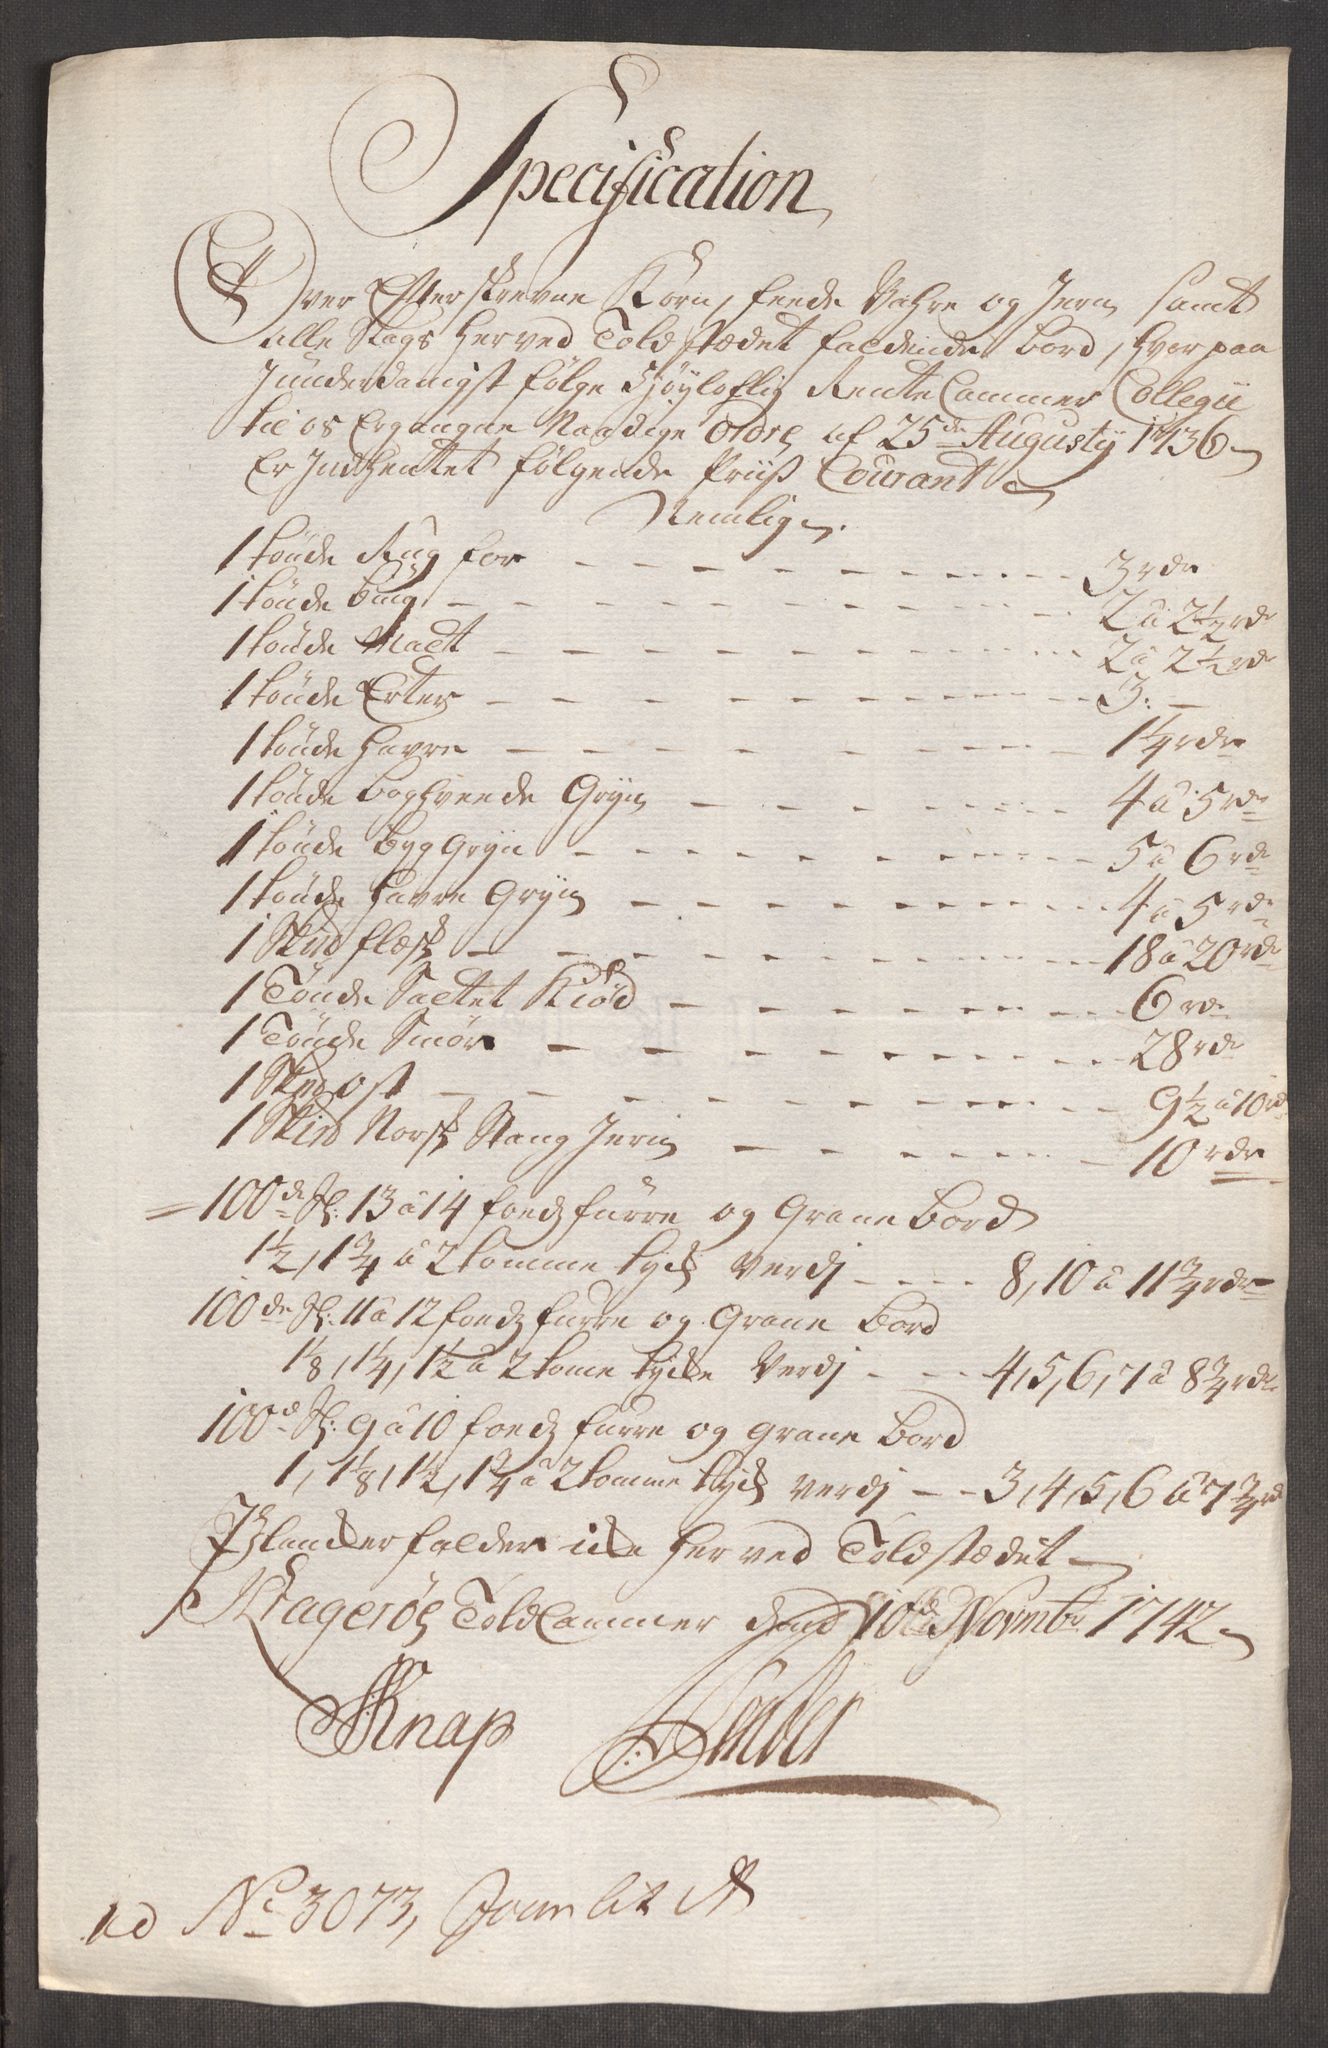 Specification
Over Efterskrevne Korn, feede Vahre og Jern samt
alle Slags her ved Toldstædet faldende bord, hvor paa
J underdanigst følge Højloflig Rente Cammer Collegii
til os Ergangne Naadige Ordre af 25de Augustij 1736
Er Indhentet følgende Priiß Courant
Nemlig.
1 tønde Rug for 3 rdr
1 tønde bug 2 à 2 1/2 rdr
1 tønde Malt 2 à 2 1/2 rdr
1 tønde Erter 3:
1 tønde havre 1 1/4 rdr
1 tønde boghvede Gryn 4 à 5 rdr
1 tønde byg gryn 5 à 6 rdr
1 tønde havre Gryn 4 à 5 rdr
1 Skpd flæsk 18 à 20 rdr
1 Tønde Saltet Kiød 6 rdr
1 Tønde Smør 28 rdr
1 Skpd ost 9 1/2 à 10 rdr
1 Skpd Norsk Stang Jern 10 rdr
100de St: 13 à 14 foeds furre og Grane bord
1 1/2, 1 3/4 à 2 tomme tyck Verdj 8, 10 à 11 3/4 rdr
100de St: 11 à 12 foeds furre og Grane bord
1 1/8, 1 1/4, 1 1/2 à 2 tome tycke Verdj 4, 5, 6, 7 à 8 3/4 rdr
100de St: 9 à 10 foeds furre og grane bord
1, 1 1/8, 1 1/2, 1 3/4 à 2 tomme tyck verdj 3, 4, 5, 6 à 7 3/4 rdr
falder icke her ved Toldstædet
Kragerøe Told Cammer den 10de Novmbr 1742
Knap
ad No 3073, Journ lit A